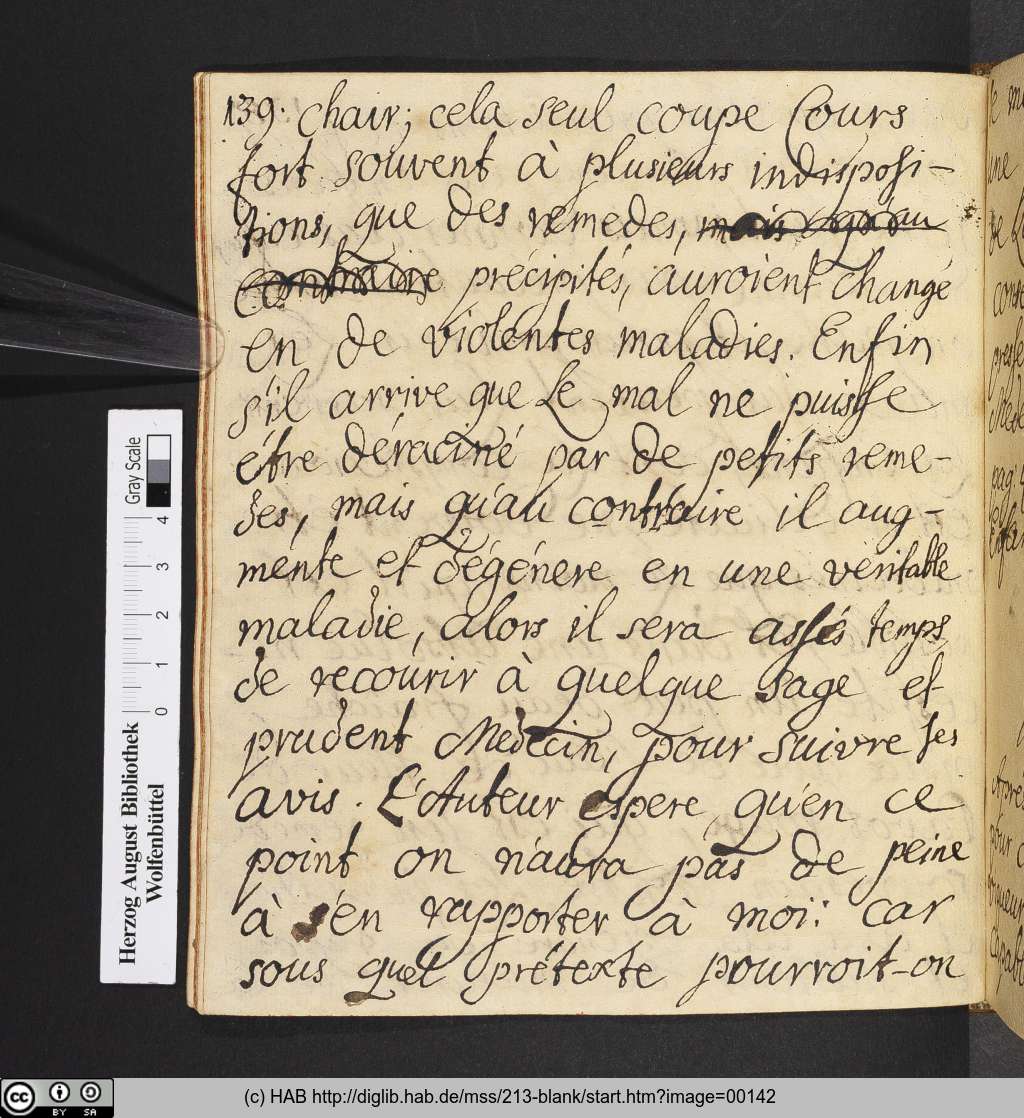 139. chair; cela seul coupe Cours
fort souvent à plusieurs indisposi-
tions, que des remedes, mais qu'au
contraire précipités, auroient changé
en de violentes maladies. Enfin
s'il arrive que le mal ne puisse
étre déraciné par de petits reme-
des, mais qu'au contraire il aug-
mente et dégénere en une véritable
maladie, alors il sera assés temps
de recourir à quelque sage et
prudent Médecin, pour suivre ses
avis. L'Auteur espere qu'en ce
point on n'aura pas de peine
à s'en rapporter à moi: car
sous quel prétexte pourroit-on
Gray Scale
0 1 2 3 4
Herzog August Bibliothek
Wolfenbüttel
cc BY SA
(c) HAB http://diglib.hab.de/mss/213-blank/start.htm?image=00142